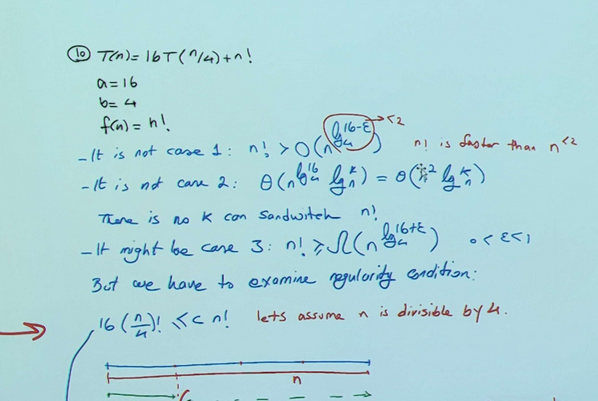 ⑩ T(n) = 16T(n/4) + n!
a = 16
b = 4
f(n) = n!
- It is not case 1: n! > O(n^{log_4^{16-ε}}) → <2 n! is faster than n^{<2}
- It is not case 2: θ(n^{log_4^{16}} log_n^k) = θ(n^2 log_n^k)
There is no k can sandwitch n!
- It might be case 3: n! ≥ Ω(n^{log_4^{16+ε}}) 0 < ε < 1
But we have to examine regularity condition:
16(n/4)! ≤ c n! lets assume n is divisible by 4.
n